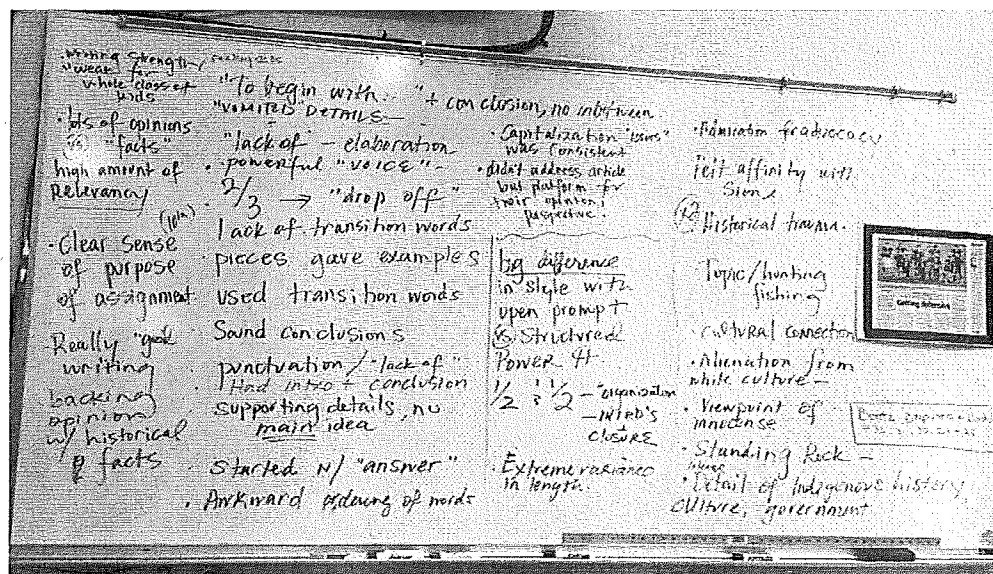 Writing Strength/
"weak" for
whole class of
kids
• lots of opinions
vs "facts"
high amount of
Relevancy
• Clear Sense
of purpose
of assignment
Really "good"
writing
backing
opinion
w/ historical
facts
"To begin with..." + conclusion, no inbetween
"VOMITED" DETAILS —
"lack of" – elaboration
• powerful "voice" –
• 2/3 → "drop off"
lack of transition words
• pieces gave examples
used transition words
Sound conclusions
punctuation/"lack of"
Had intro + conclusion
supporting details, no
main idea
• Started w/ "answer"
• Awkward ordering of words
• Capitalization "issues"
was consistent
• didn't address article
but platform for
their opinion/
perspective.
big difference
in style with
open prompt
vs Structured
Power 4
1/2 : 1/2 – organization
– INTRO'S
+
CLOSURE
• Extreme variance
in length.
• Admiration for advocacy
Felt affinity with
Historical trauma.
Topic/hunting
fishing
• cultural connection
• Alienation from
white culture –
• Viewpoint of
innocense
• Standing Rock –
• Detail of Indigenous history,
culture, government